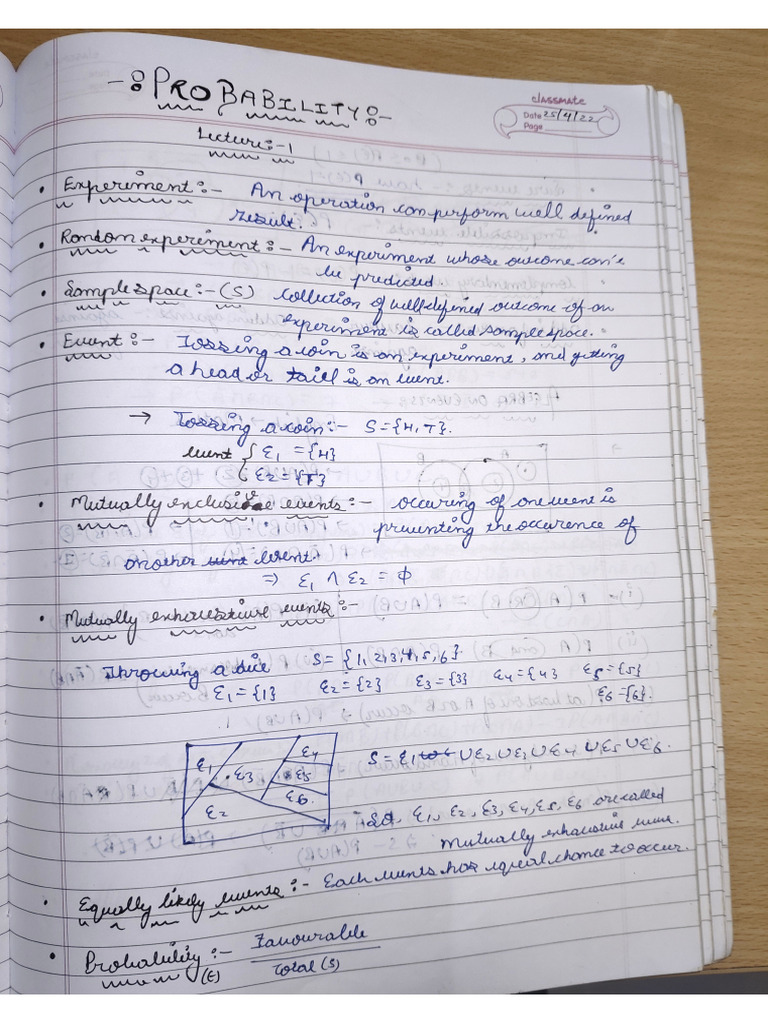 -: PROBABILITY :-
classmate
Date 25/4/22
Page
Lecture:-1
• Experiment:- An operation can perform well defined
result.
• Random experiment:- An experiment whose outcome can't
be predicted
• Sample space:-(S) collection of well defined outcome of an
experiment is called sample space.
• Event:- Tossing a coin is an experiment, and getting
a head or tail is an event.
→ Tossing a coin:- S={H,T}.
event { E1 = {H}
E2 = {T}
• Mutually exclusive events:- occuring of one event is
preventing the occurence of
another event.
⇒ E1 ∩ E2 = ϕ
• Mutually exhaustive events:-
Throwing a dice S = {1,2,3,4,5,6}
E1={1} E2={2} E3={3} E4={4} E5={5}
E6={6}.
E1 E3 E4 E5 E6. E2
S = E1 ∪ E2 ∪ E3 ∪ E4 ∪ E5 ∪ E6.
So, E1, E2, E3, E4, E5, E6 are called
Mutually exhaustive
• Equally likely events:- Each events has equal chance to occur.
• Probability:- Favourable
(E) Total (S)